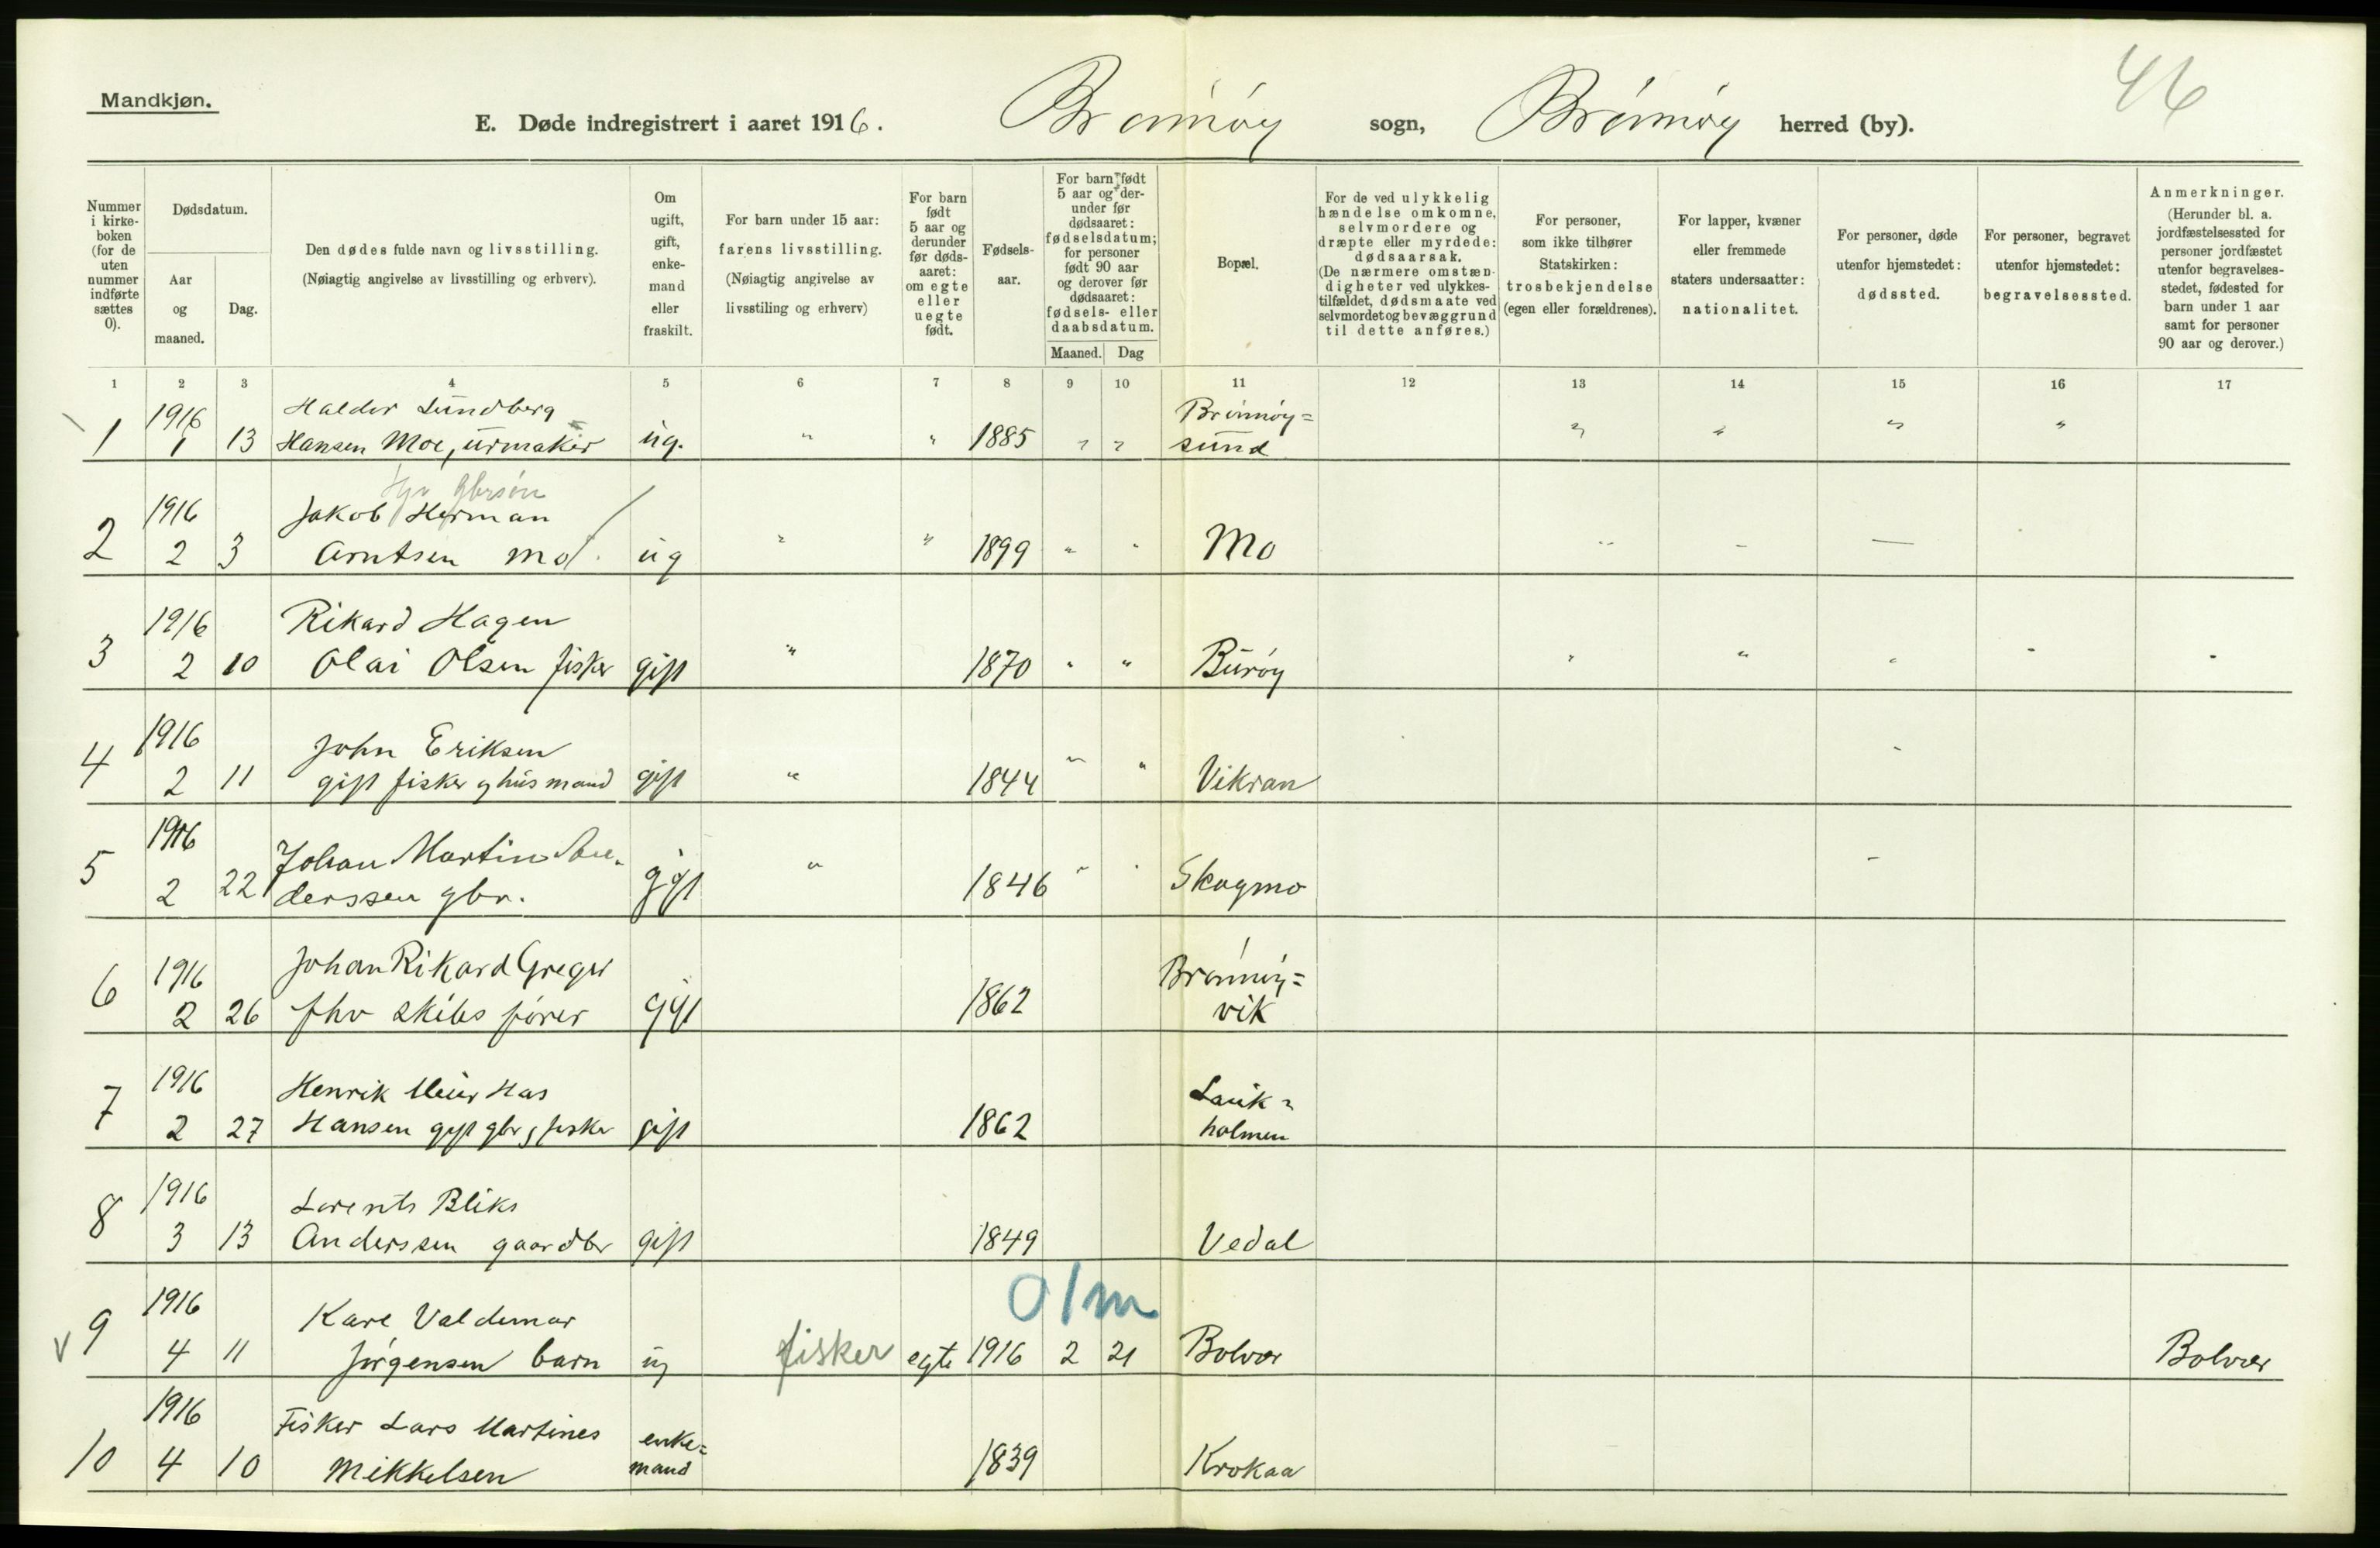 46
Mandkjøn.
E. Døde indregistrert i aaret 1916. Brønnøy sogn, Brønnøy herred (by).
Nummer i kirke-boken (for de uten nummer indførte sættes 0).
Dødsdatum.
Aar og maaned.
Dag.
Den dødes fulde navn og livsstilling.
(Nøiagtig angivelse av livsstilling og erhverv).
Om ugift, gift, enke-mand eller fraskilt.
For barn under 15 aar: farens livsstilling.
(Nøiagtig angivelse av livsstiling og erhverv)
For barn født 5 aar og derunder før døds-aaret: om egte eller uegte født.
Fødsels-aar.
For barn født 5 aar og der-under før dødsaaret: fødselsdatum; for personer født 90 aar og derover før dødsaaret: fødsels- eller daabsdatum.
Maaned. Dag
Bopæl.
For de ved ulykkelig hændelse omkomne, selvmordere og dræpte eller myrdede: dødsaarsak.
(De nærmere omstæn-digheter ved ulykkes-tilfældet, dødsmaate ved selvmordet og bevæggrund til dette anføres.)
For personer, som ikke tilhører Statskirken: trosbekjendelse (egen eller forældrenes).
For lapper, kvæner eller fremmede staters undersaatter: nationalitet.
For personer, døde utenfor hjemstedet: dødssted.
For personer, begravet utenfor hjemstedet: begravelsessted.
Anmerkninger.
(Herunder bl. a. jordfæstelsessted for personer jordfæstet utenfor begravelses-stedet, fødested for barn under 1 aar samt for personer 90 aar og derover.)
1 2 3 4 5 6 7 8 9 10 11 12 13 14 15 16 17
1916 Haldor Lundberg Brønnøy=
1 1 13 Hansen Moe, urmaker ug. " " 1885 " " sund " " " "
1916 Jakob Herman
2 2 3 Arntsen Mo ug " " 1899 " " Mo " - —
1916 Rikard Hagen
3 2 10 Olai Olsen fisker gift " 1870 " " Burøy " " " " "
1916 John Eriksen
4 2 11 gift fisker og husmand gift " 1844 " " Vikran "
1916 Johan Martin An-
5 2 22 derssen gbr. gift " 1846 " " Skogmo -
1916 Johan Rikard Greger Brønnøy=
6 2 26 fhv skibsfører gift 1862 vik
1916 Henrik Meier Has
7 2 27 Hansen gift gbr og fisker gift 1862 holmen
1916 Lorents Bliks
8 3 13 Anderssen gaardbr gift 1849 Vedal
0/m
1916 Karl Valdemar
v 9 4 11 Jørgensen barn ug fisker egte 1916 2 21 Bolvær Bolvær
1916 Fisker Lars Martines enke=
10 4 10 Mikkelsen mand 1839 Krokaa